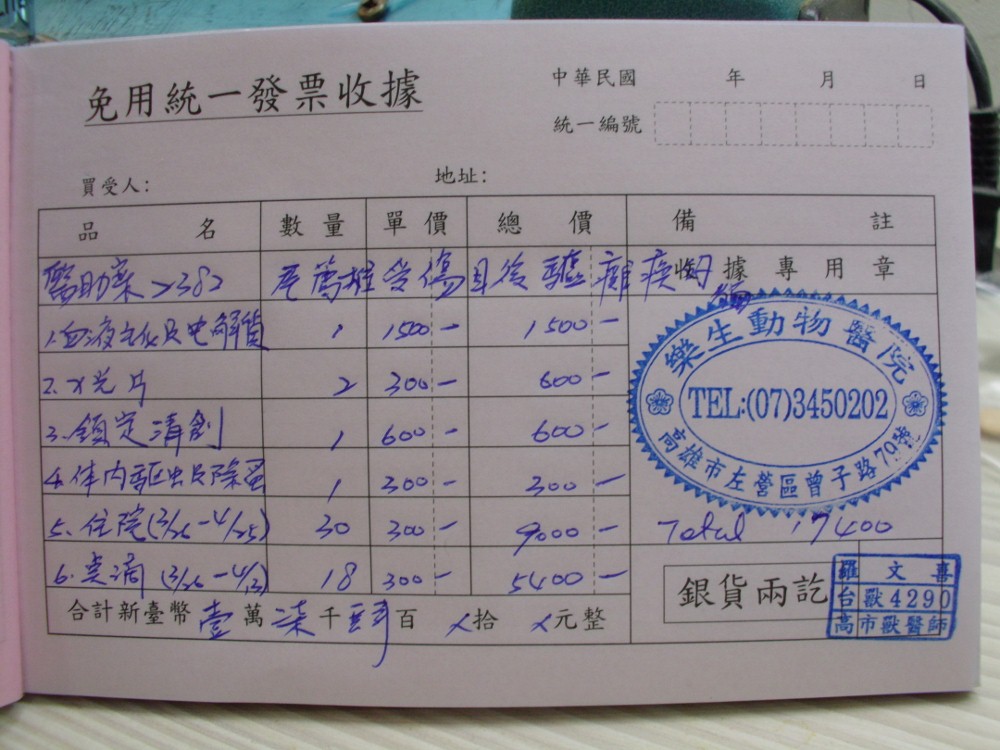 免用統一發票收據
中華民國 年 月 日
統一編號
買受人: 地址:
品名 數量 單價 總價 備註
醫助案 2382 尾萬雄受傷
收據專用章
1.血液生化及电解質 1 1500- 1500-
2. X光片 2 300- 600-
3. 鎮定清創 1 600- 600-
4. 体内驅虫及除蚤 1 300- 300-
5. 住院(3/26-4/25) 30 300- 9000-
6. 点滴 (3/26-4/13) 18 300- 5400-
樂生動物醫院
TEL:(07)3450202
高雄市左營區曾子路70號
Total 17400
合計新臺幣 壹萬柒千肆百 X拾 X元整
銀貨兩訖
羅文喜
台獸4290
高市獸醫師